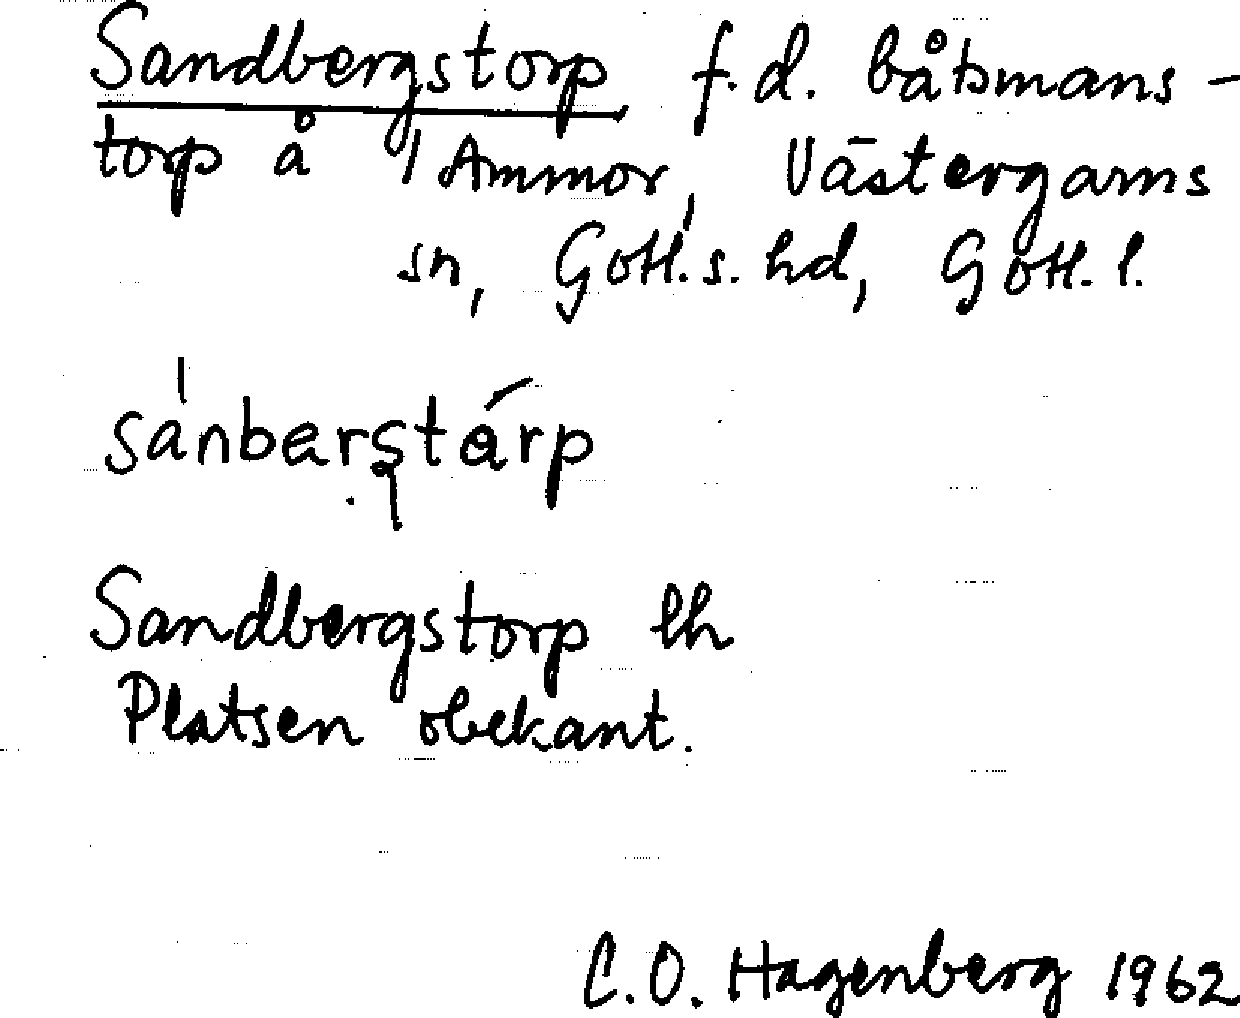 Sandbergstorp f.d. båtsmans-
torp å 1 Ammor, Västergarns
sn, Gotl. s. hd, Gotl. l.
sánberstárp
Sandbergstorp lh
Platsen obekant.
C.O. Hagenberg 1962